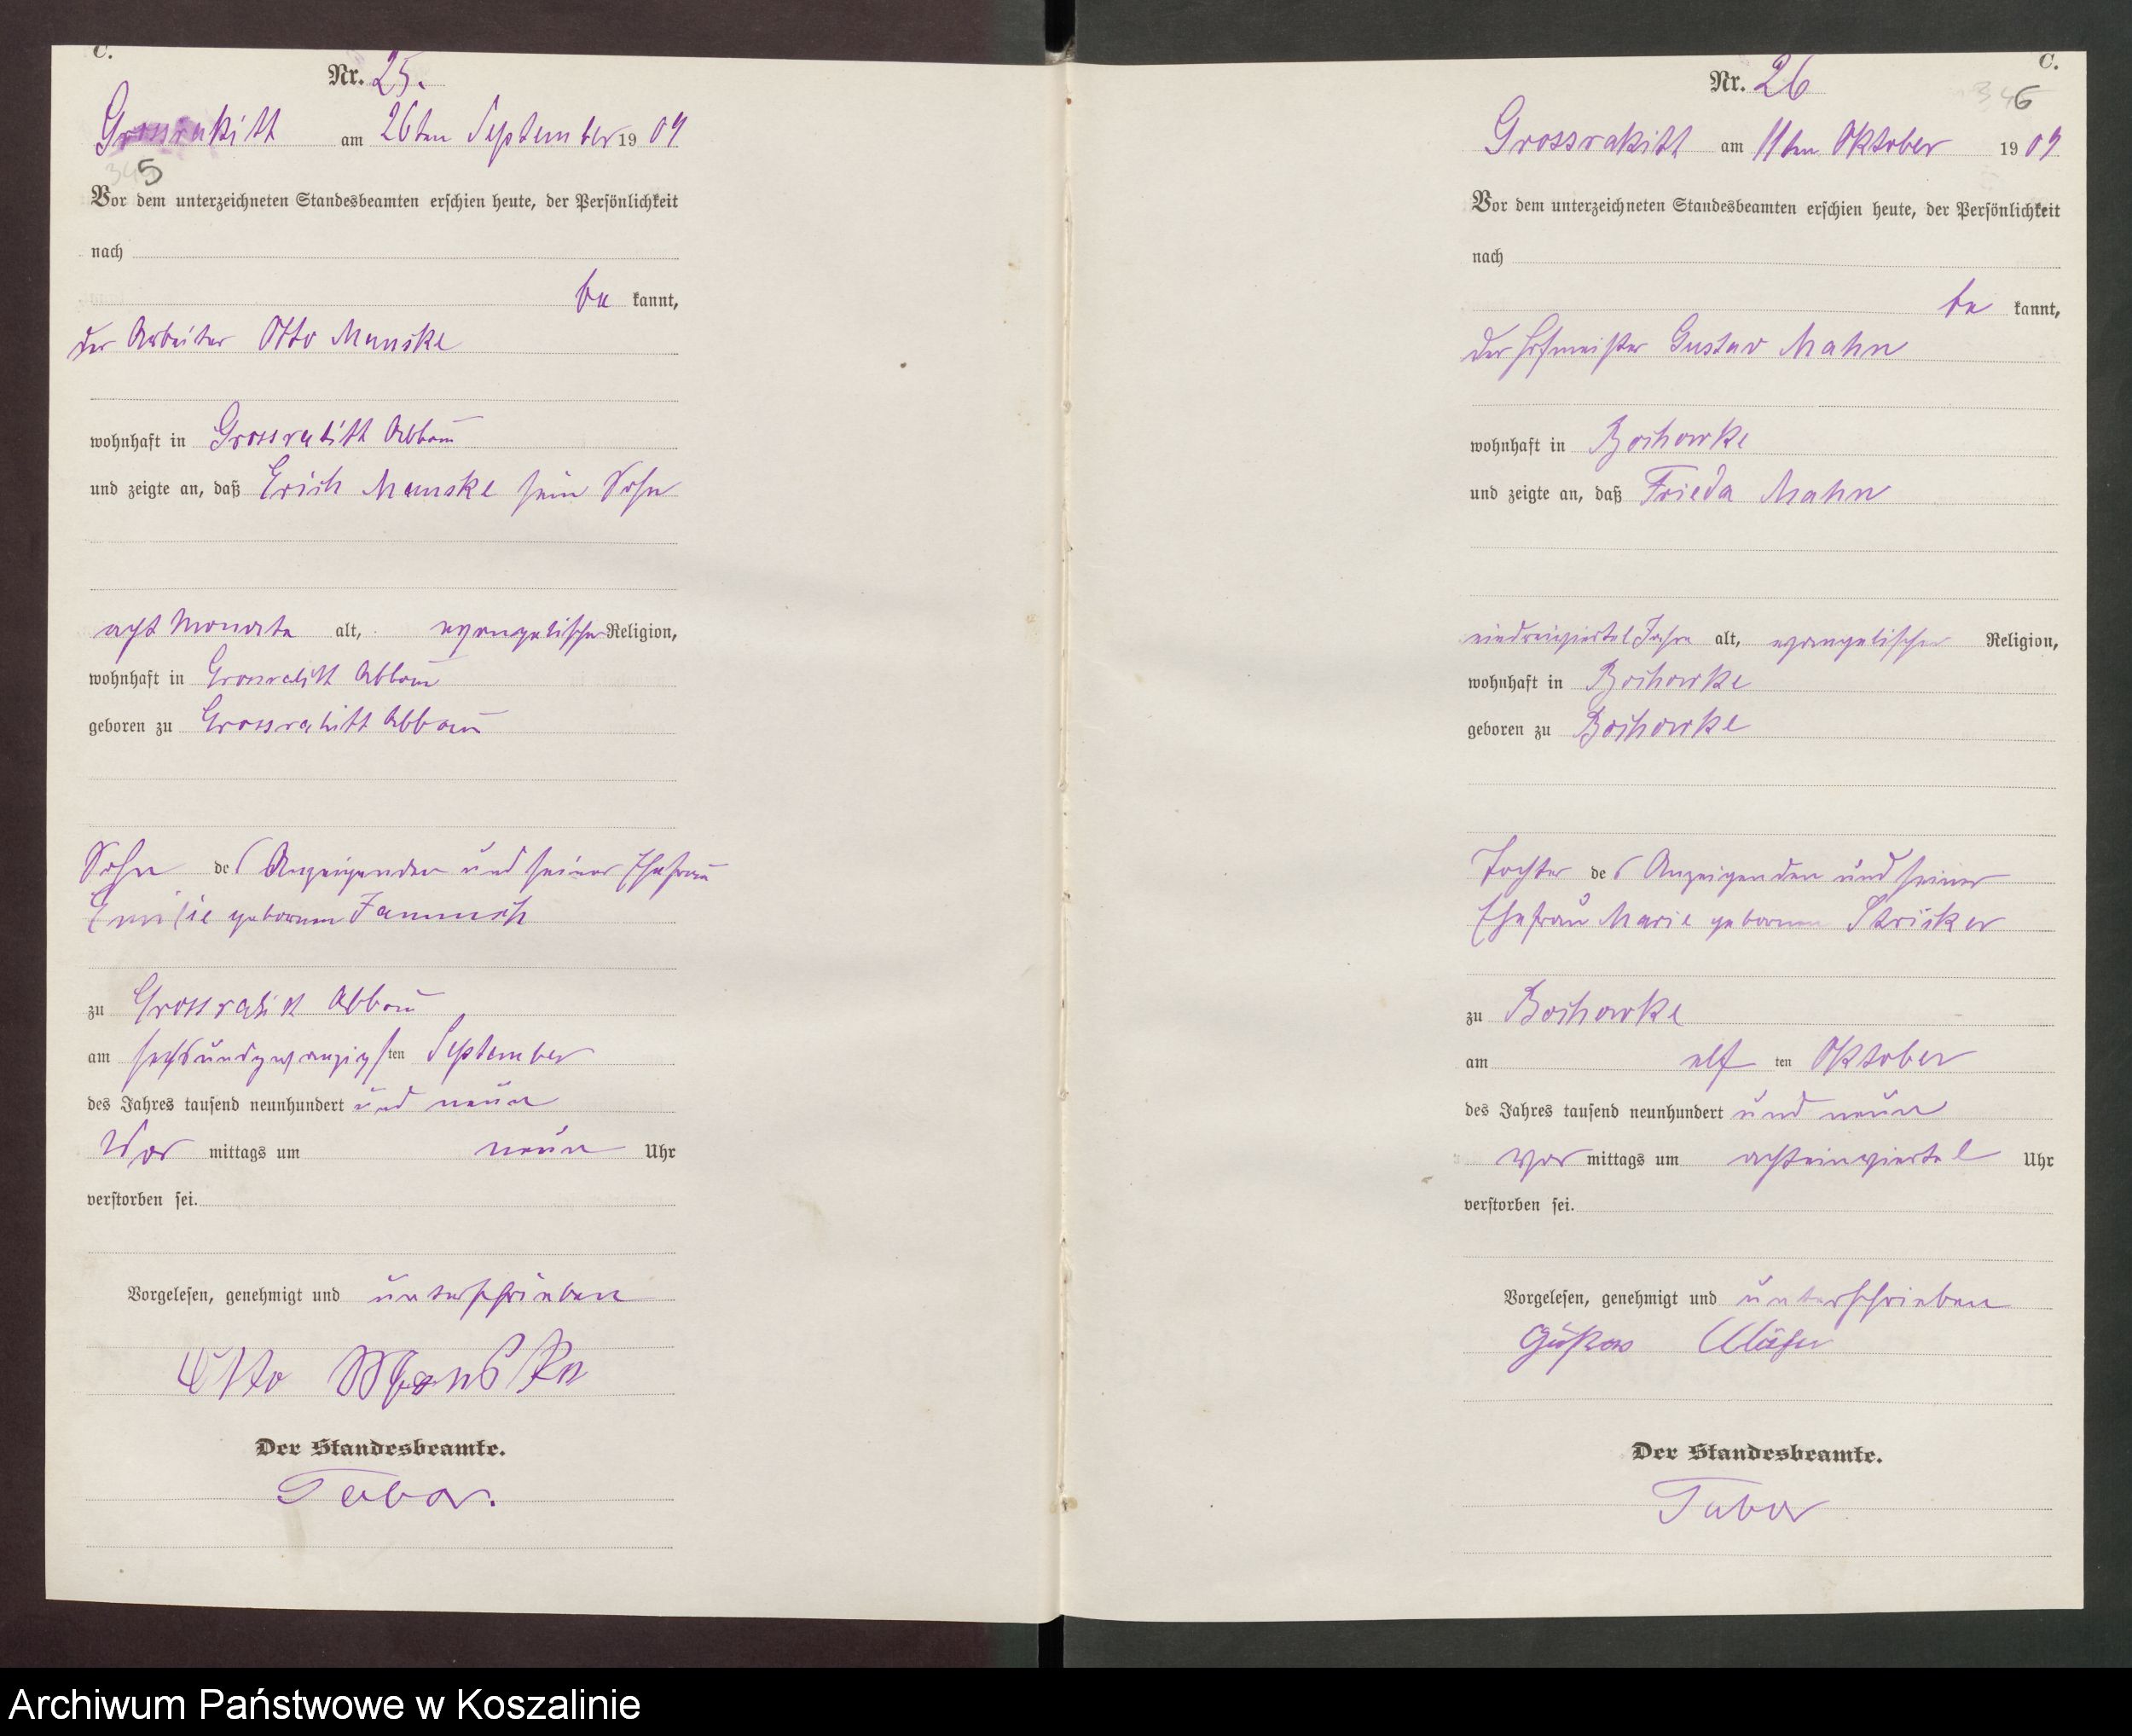 C.
Nr. 25.
Grossrakitt am 26ten September 1909
345
Vor dem unterzeichneten Standesbeamten erschien heute, der Persönlichkeit
nach
be kannt,
der Arbeiter Otto Manske
wohnhaft in Grossrakitt Abbau
und zeigte an, daß Erich Manske sein Sohn
acht Monate alt, evangelischer Religion,
wohnhaft in Grossrakitt Abbau
geboren zu Grossrakitt Abbau
Sohn des Anzeigenden und seiner Ehefrau
Emilie geborenen
zu Grossrakitt Abbau
am sechsundzwanzigsten September
des Jahres tausend neunhundert und neun
Vor mittags um neun Uhr
verstorben sei.
Vorgelesen, genehmigt und unterschrieben
Otto Manske
Der Standesbeamte.
Tabor.
C.
Nr. 26
346
Grossrakitt am 11ten Oktober 1909
Vor dem unterzeichneten Standesbeamten erschien heute, der Persönlichkeit
nach
be kannt,
der Hofmeister Gustav Mahn
wohnhaft in Bochowke
und zeigte an, daß Frieda Mahn
eindreiviertel Jahre alt, evangelischer Religion,
wohnhaft in Bochowke
geboren zu Bochowke
Tochter des Anzeigenden und seiner
Ehefrau Marie geborenen Stricker
zu Bochowke
am elf ten Oktober
des Jahres tausend neunhundert und neun
vor mittags um achteinviertel Uhr
verstorben sei.
Vorgelesen, genehmigt und unterschrieben
Gustav Mahn
Der Standesbeamte.
Tabor
Archiwum Państwowe w Koszalinie